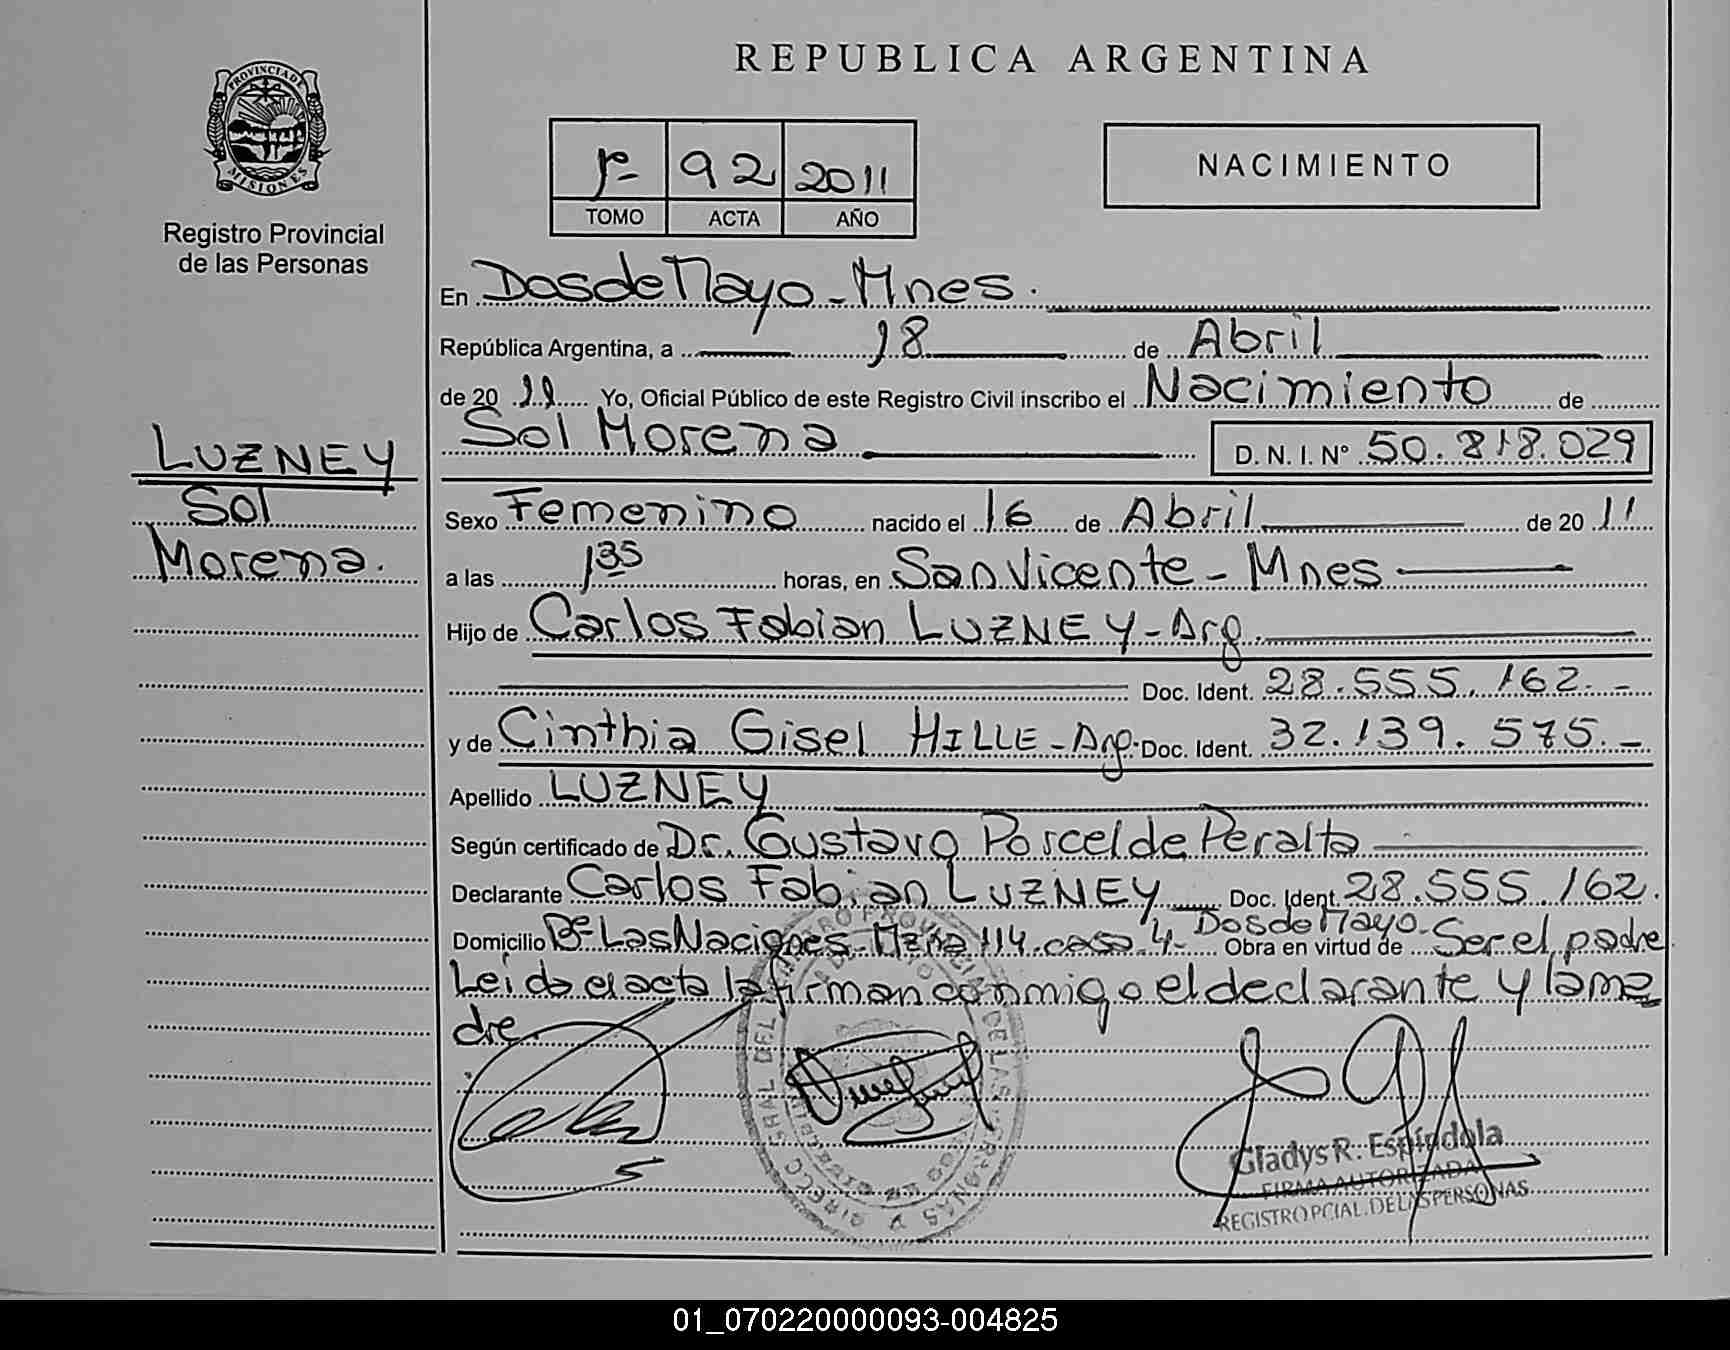 REPUBLICA ARGENTINA
PROVINCIA DE MISIONES
Registro Provincial
de las Personas
1º 92 2011
TOMO ACTA AÑO
NACIMIENTO
LUZNEY
Sol
Morena.
En Dos de Mayo - Mnes.
República Argentina, a 18 de Abril
de 20 11 Yo, Oficial Público de este Registro Civil inscribo el Nacimiento de
Sol Morena D. N. I. Nº 50.818.029
Sexo Femenino nacido el 16 de Abril de 20 11
a las 1 35 horas, en San Vicente - Mnes
Hijo de Carlos Fabian LUZNEY - Arg.
Doc. Ident. 28.555.162.-
y de Cinthia Gisel HILLE - Arg. Doc. Ident. 32.139.575.-
Apellido LUZNEY
Según certificado de Dr. Gustavo Porcel de Peralta
Declarante Carlos Fabian LUZNEY Doc. Ident. 28.555.162.
Domicilio Bº Las Naciones - Mzna 114 casa 4 - Dos de Mayo - Obra en virtud de Ser el padre
Leida el acta la firman conmigo el declarante y la ma
dre
Gladys R. Espíndola
FIRMA AUTORIZADA
REGISTRO PCIAL. DE LAS PERSONAS
01_070220000093-004825